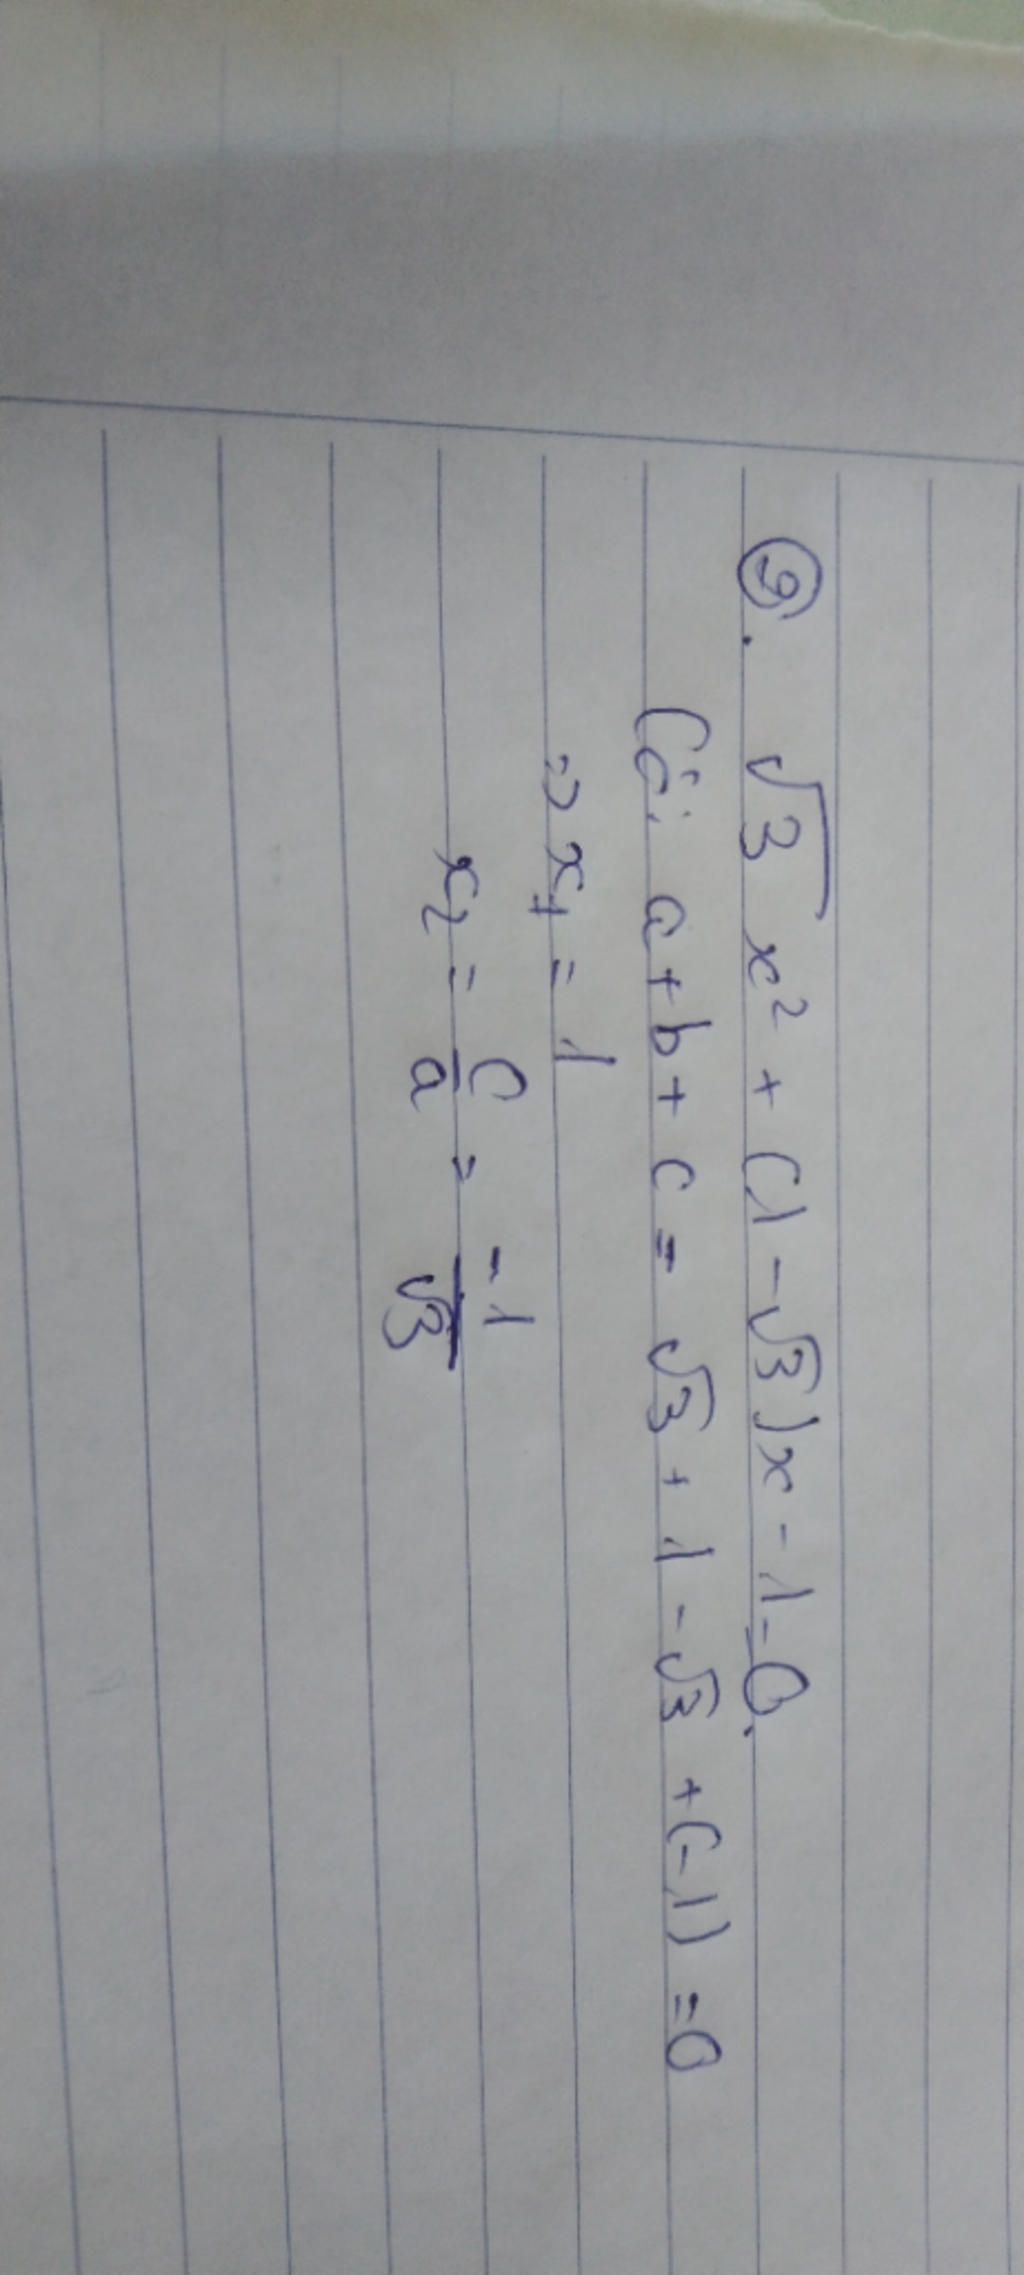 ⑨. √3 x² + (1 - √3)x - 1 = 0.
Có: a + b + c = √3 + 1 - √3 + (-1) = 0
=> x₁ = 1
x₂ = c/a = -1/√3